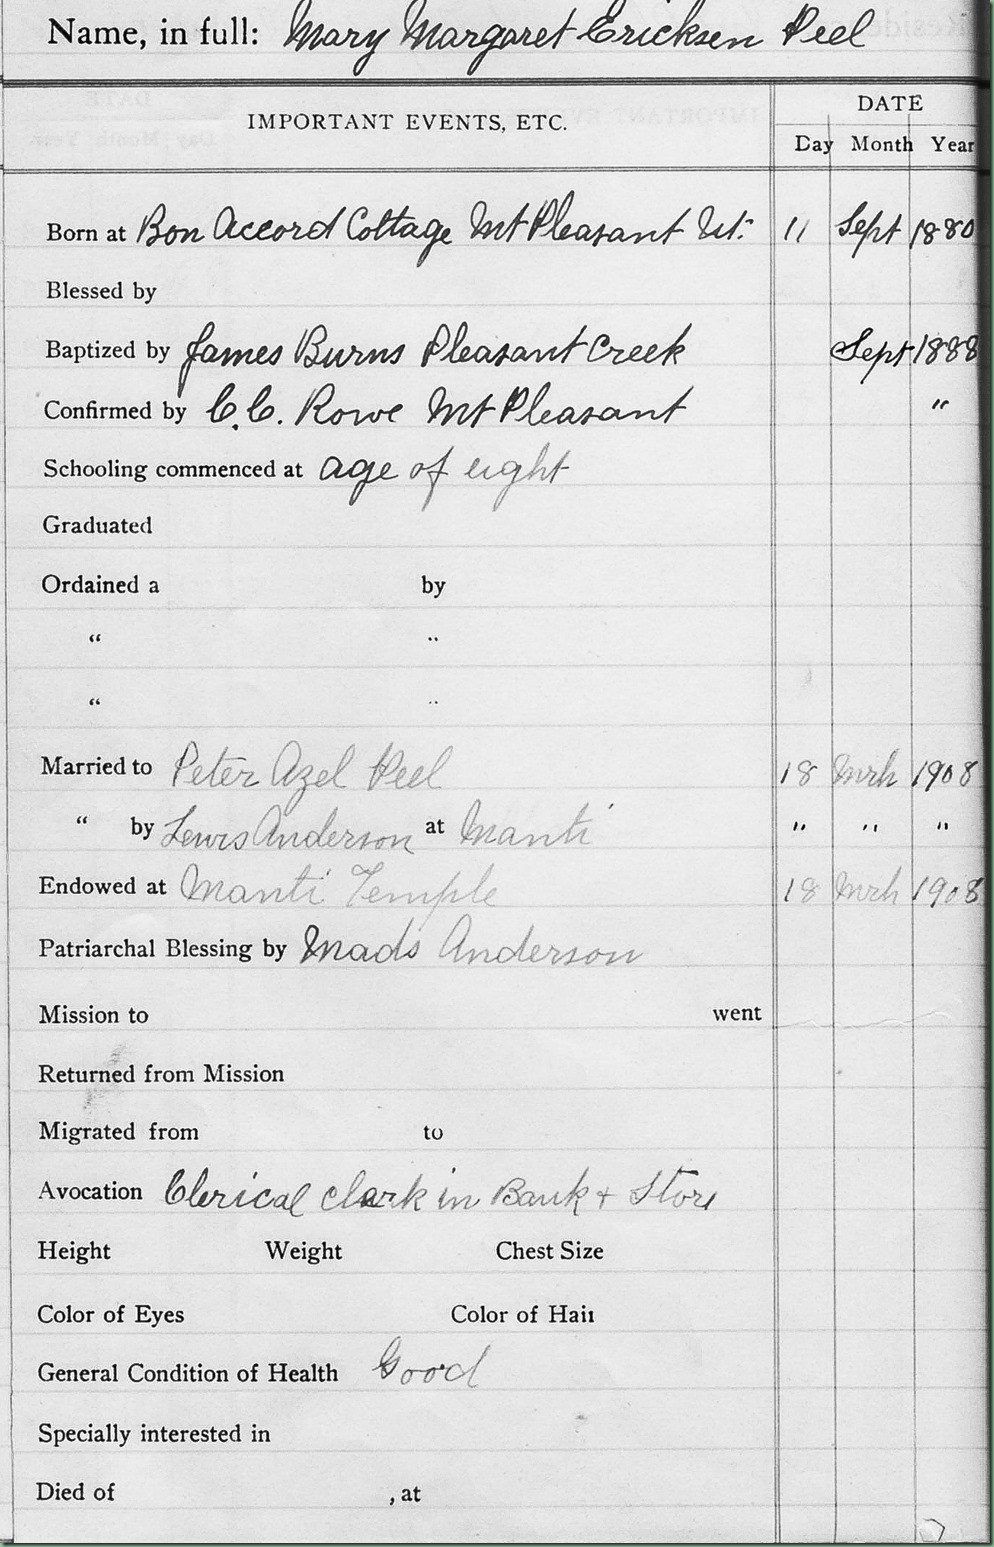 Name, in full: Mary Margaret Ericksen Peel
IMPORTANT EVENTS, ETC. DATE
Day Month Year
Born at Bon Accord Cottage Mt Pleasant Ut. 11 Sept 1880
Blessed by
Baptized by James Burns Pleasant Creek Sept 1888
Confirmed by C.C. Rowe Mt Pleasant "
Schooling commenced at age of eight
Graduated
Ordained a by
" "
" "
Married to Peter Azel Peel 18 Mrh 1908
" by Lewis Anderson at Manti " " "
Endowed at Manti Temple 18 Mrh 1908
Patriarchal Blessing by Mads Anderson
Mission to went
Returned from Mission
Migrated from to
Avocation Clerical clark in Bank + Store
Height Weight Chest Size
Color of Eyes Color of Hair
General Condition of Health Good
Specially interested in
Died of , at